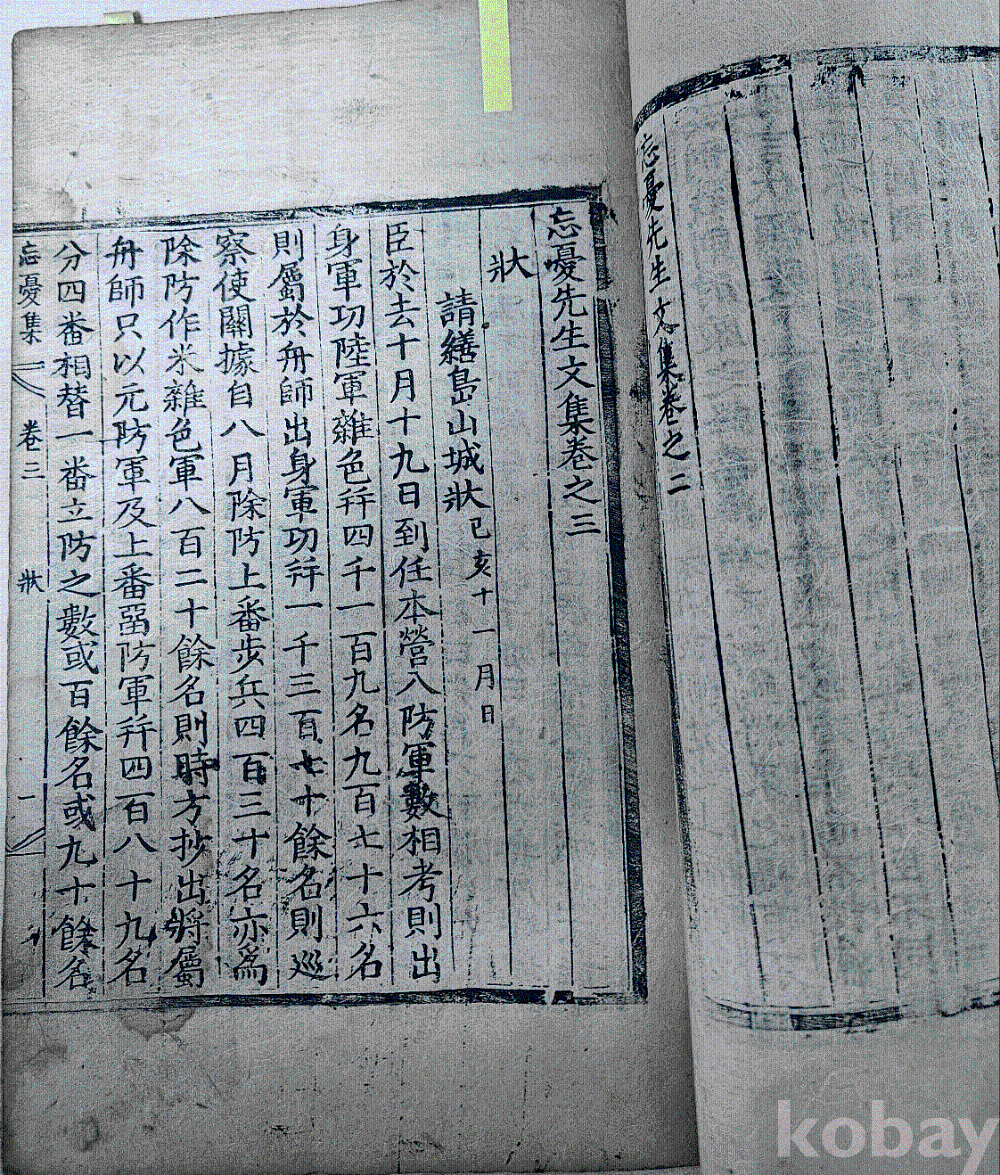 忘憂先生文集卷之二
忘憂先生文集卷之三
狀
請繕島山城狀 己亥十一月日
臣於去十月十九日到任本營入防軍數相考則出
身軍功陸軍雜色幷四千一百九名九百七十六名
則屬於舟師出身軍功幷一千三百七十餘名則巡
察使關據自八月除防上番步兵四百三十名亦爲
除防作米雜色軍八百二十餘名則時方抄出將屬
舟師只以元防軍及上番畱防軍幷四百八十九名
分四番相替一番立防之數或百餘名或九十餘名
忘憂集 卷三 狀 一
kobay